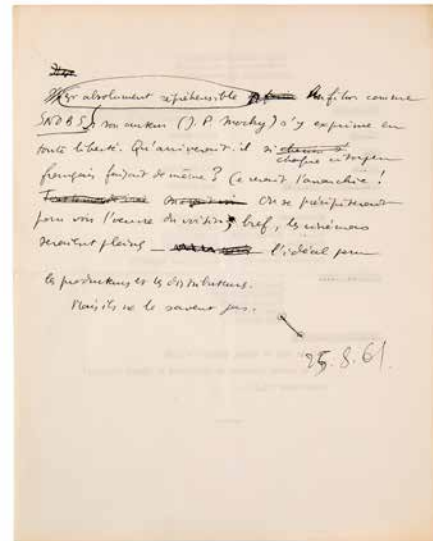 est absolument répréhensible Un film comme
SNOBS, son auteur (J. P. Mocky) s'y exprime en
toute liberté. Qu'arriverait-il si
chaque citoyen
français faisait de même ? Ce serait l'anarchie !
On se précipiterait
pour voir l'œuvre du voisin, bref, les cinémas
seraient pleins — l'idéal pour
les producteurs et les distributeurs.
Mais ils ne le savent pas.
25.8.61